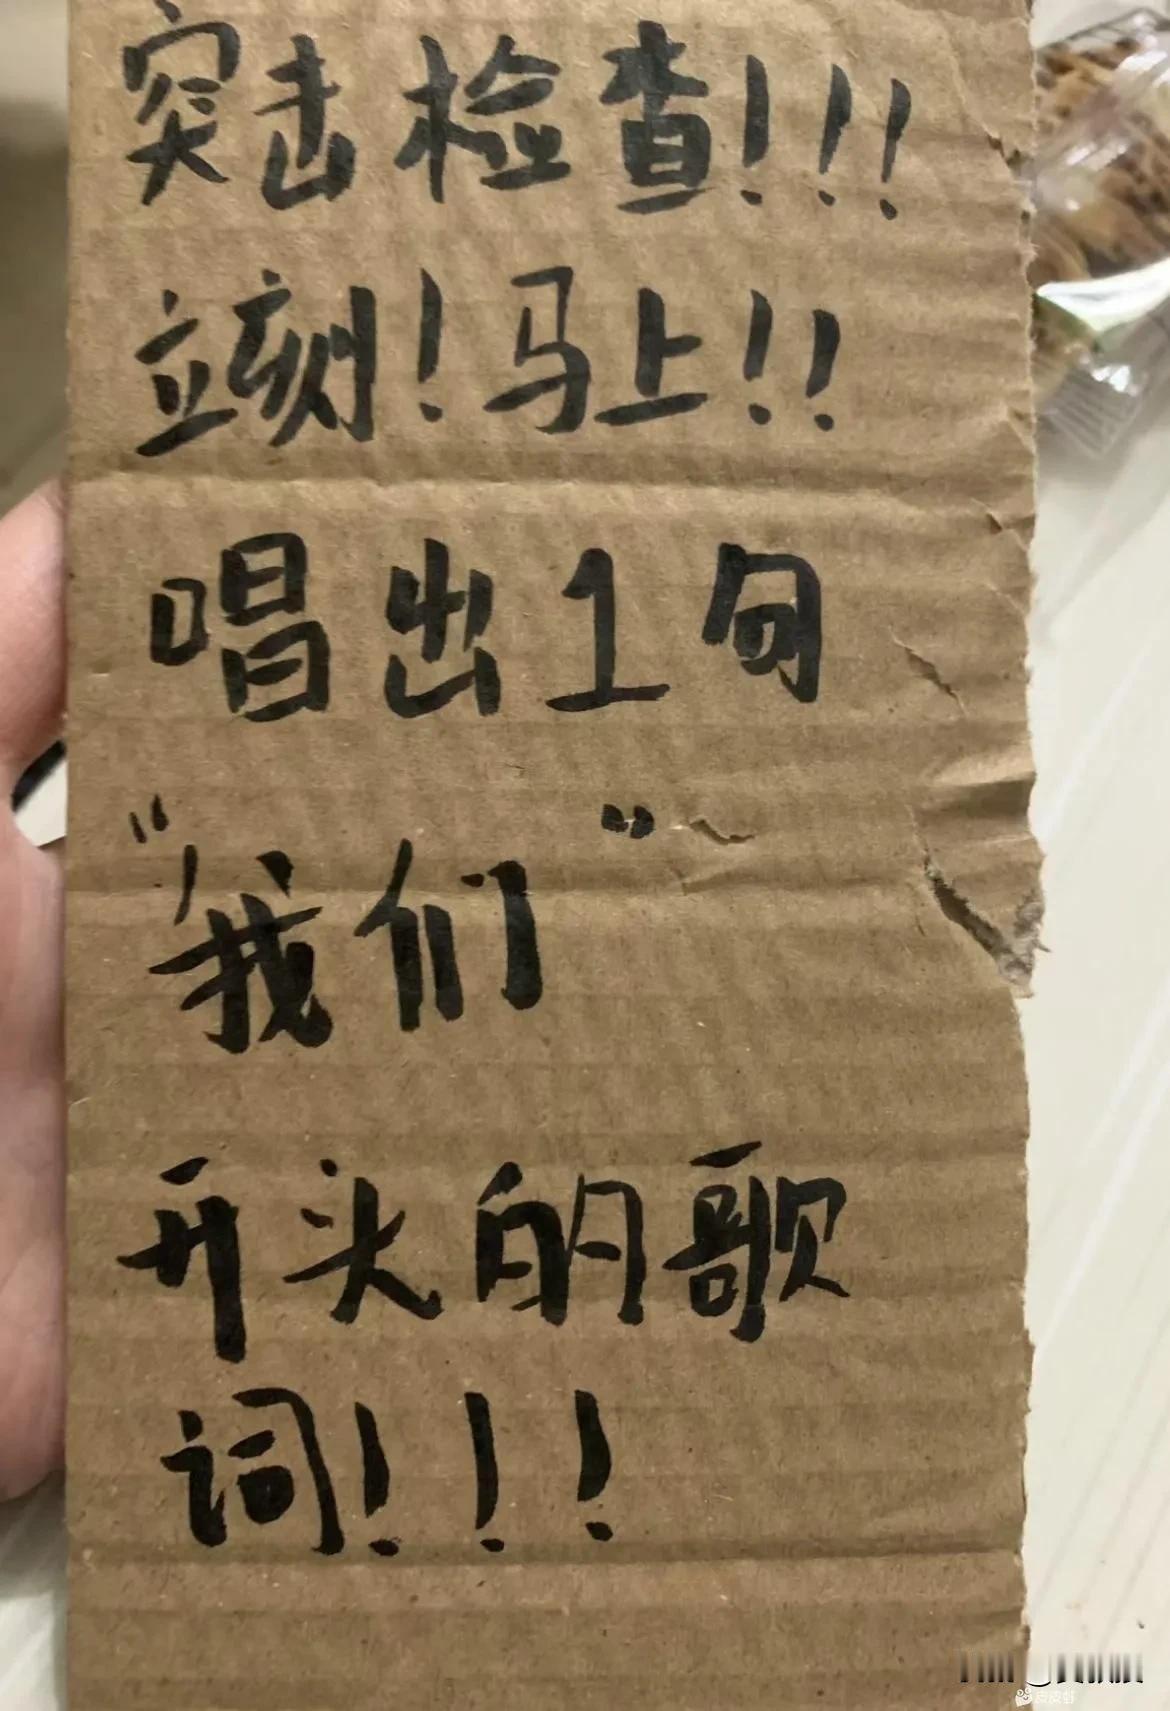 突击检查!!!
立刻!马上!!
唱出1句
"我们"
开头的歌
词!!!
皮皮虾